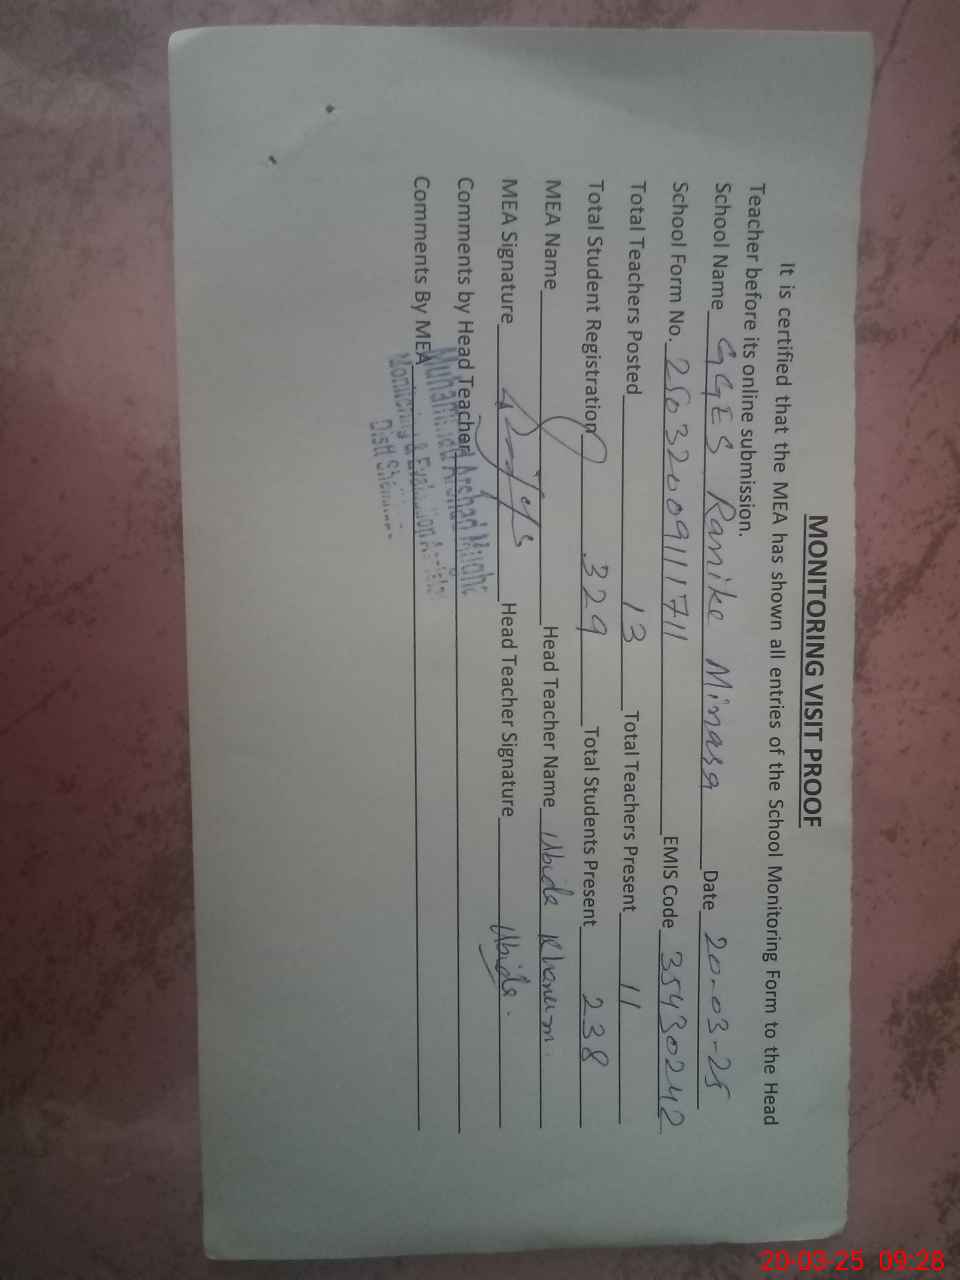 MONITORING VISIT PROOF
It is certified that the MEA has shown all entries of the School Monitoring Form to the Head
Teacher before its online submission.
School Name GGES Ranike Minasa Date 20-03-25
School Form No. 2503200911171 EMIS Code 35430242
Total Teachers Posted 13 Total Teachers Present 11
Total Student Registration 329 Total Students Present 238
MEA Name Head Teacher Name Ubida Khanum.
MEA Signature Head Teacher Signature Ubida.
Comments by Head Teacher
Muhammad Arshad
Comments By MEA
Monitoring & Evaluation
Distt
20-03-25 09:28